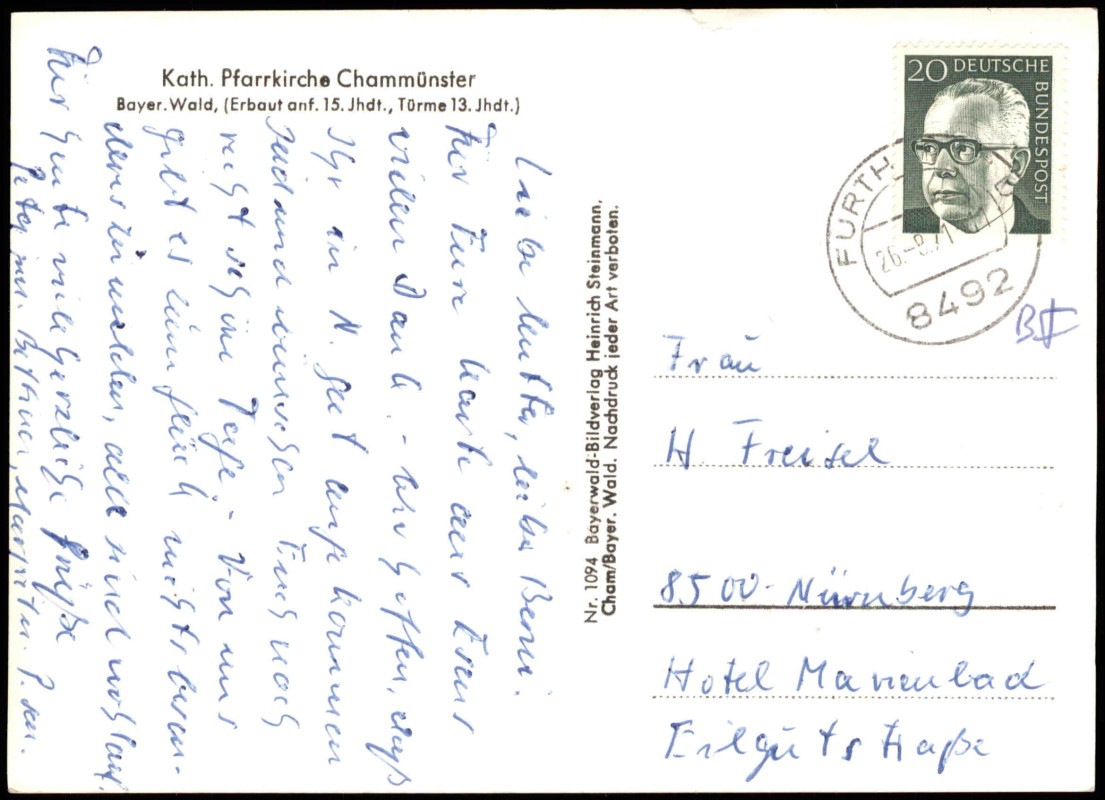 Kath. Pfarrkirche Chammünster
Bayer. Wald, (Erbaut anf. 15. Jhdt., Türme 13. Jhdt.)
Liebe Mutter, liebe Berni.
Für Eure Karte aus
vielen Dank. - Wir hoffen, daß
Ihr in N. gut angekommen
seid und wünschen Euch noch
recht schöne Tage. Von uns
gibt es eigentlich nichts beson-
deres zu melden, alle sind wohlauf.
Für heute viele herzliche Grüße
Peter jun. Margret u. P. sen.
Nr. 1094 Bayerwald-Bildverlag Heinrich Steinmann,
Cham/Bayer. Wald. Nachdruck jeder Art verboten.
20 DEUTSCHE
BUNDESPOST
FURTH
26.-8.71
8492
Frau
H. Freisel
8500-Nürnberg
Hotel Marienbad
Eilgutstraße